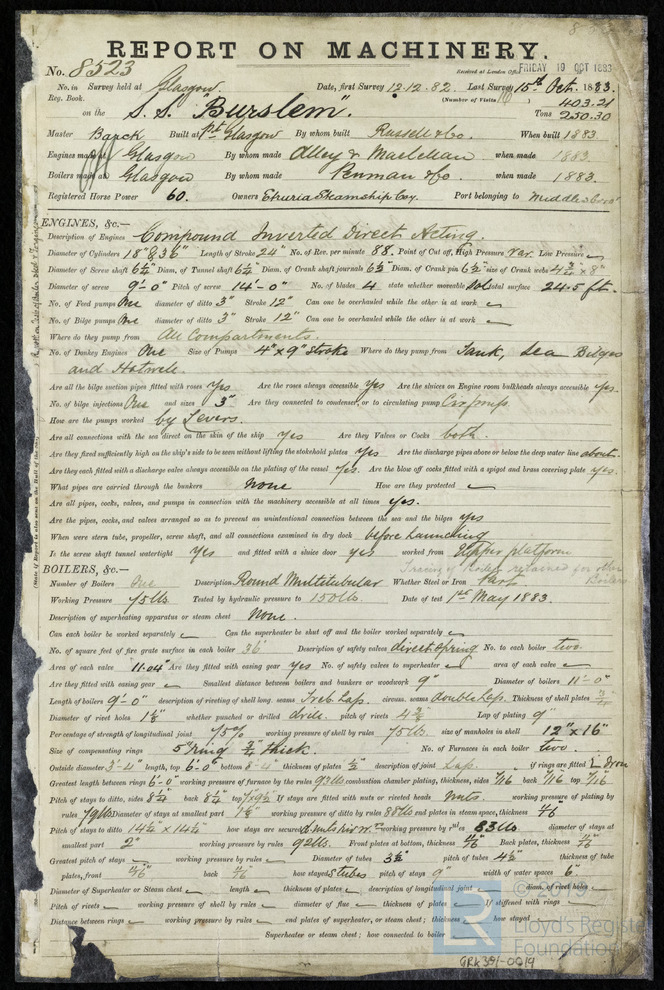 REPORT ON MACHINERY.
No. 8523
Received at London Office FRIDAY 19 OCT 1883
No. in Survey held at Glasgow Date, first Survey 12.12.82. Last Survey 15th Oct. 1883.
Reg. Book. (Number of Visits )
on the S.S. "Burslem". 403.21
Tons 250.30
Master Built at Pt Glasgow By whom built Russell & Co. When built 1883
Engines made at Glasgow By whom made Alley & Maclellan when made 1883.
Boilers made at Glasgow By whom made Penman & Co. when made 1883.
Registered Horse Power 60. Owners Etruria Steamship Coy. Port belonging to Middlesboro'
ENGINES, &c.—
Description of Engines Compound Inverted Direct Acting.
Diameter of Cylinders 18" & 36" Length of Stroke 24" No. of Rev. per minute 88. Point of Cut off, High Pressure var. Low Pressure
Diameter of Screw shaft 6½" Diam. of Tunnel shaft 6½" Diam. of Crank shaft journals 6½" Diam. of Crank pin 6½" size of Crank webs 4¾" x 8"
Diameter of screw 9'-0" Pitch of screw 14'-0" No. of blades 4 state whether moveable Sol total surface 24.5 ft.
No. of Feed pumps One diameter of ditto 3" Stroke 12" Can one be overhauled while the other is at work
No. of Bilge pumps One diameter of ditto 3" Stroke 12" Can one be overhauled while the other is at work
Where do they pump from All Compartments.
No. of Donkey Engines One Size of Pumps 4" x 9" Stroke Where do they pump from Tank, Sea Bilges
and Hotwell.
Are all the bilge suction pipes fitted with roses Yes Are the roses always accessible Yes Are the sluices on Engine room bulkheads always accessible yes.
No. of bilge injections One and sizes 3" Are they connected to condenser, or to circulating pump Cir. pump.
How are the pumps worked by Levers.
Are all connections with the sea direct on the skin of the ship yes Are they Valves or Cocks both.
Are they fixed sufficiently high on the ship's side to be seen without lifting the stokehold plates yes Are the discharge pipes above or below the deep water line above.
Are they each fitted with a discharge valve always accessible on the plating of the vessel Yes. Are the blow off cocks fitted with a spigot and brass covering plate yes.
What pipes are carried through the bunkers none How are they protected
Are all pipes, cocks, valves, and pumps in connection with the machinery accessible at all times yes.
Are the pipes, cocks, and valves arranged so as to prevent an unintentional connection between the sea and the bilges yes
When were stern tube, propeller, screw shaft, and all connections examined in dry dock before launching
Is the screw shaft tunnel watertight yes and fitted with a sluice door yes worked from Upper platform
Tracing of boiler retained for other Boilers
BOILERS, &c.—
Number of Boilers One Description Round Multitubular Whether Steel or Iron
Working Pressure 75 lbs. Tested by hydraulic pressure to 150 lbs. Date of test 1st May 1883.
Description of superheating apparatus or steam chest None.
Can each boiler be worked separately Can the superheater be shut off and the boiler worked separately
No. of square feet of fire grate surface in each boiler 36' Description of safety valves direct spring No. to each boiler two.
Area of each valve 11.04" Are they fitted with easing gear yes No. of safety valves to superheater area of each valve
Are they fitted with easing gear Smallest distance between boilers and bunkers or woodwork 9" Diameter of boilers 11'-0"
Length of boilers 9'-0" description of riveting of shell long. seams Treb. Lap. circum. seams double Lap. Thickness of shell plates
Diameter of rivet holes whether punched or drilled drill. pitch of rivets Lap of plating 9"
Percentage of strength of longitudinal joint 75% working pressure of shell by rules 75 lbs. size of manholes in shell 12" x 16"
Size of compensating rings 5" ring thick. No. of Furnaces in each boiler two.
Outside diameter 3'-4" length, top 6'-0" bottom 8'-4" thickness of plates ½" description of joint Lap. if rings are fitted
Greatest length between rings 6'-0" working pressure of furnace by the rules 93 lbs combustion chamber plating, thickness, sides 7/16 back 7/16 top 7/16
Pitch of stays to ditto, sides 8¼" back 8¼" top If stays are fitted with nuts or riveted heads Nuts. working pressure of plating by
rules Diameter of stays at smallest part working pressure of ditto by rules 80 lbs end plates in steam space, thickness
Pitch of stays to ditto 14½" x 14½" how stays are secured working pressure by rules 83 lbs diameter of stays at
smallest part 2" working pressure by rules 92 lbs. Front plates at bottom, thickness Back plates, thickness
Greatest pitch of stays working pressure by rules Diameter of tubes 3½" pitch of tubes 4½" thickness of tube
plates, front back how stayed S tubes pitch of stays 9" width of water spaces 6"
Diameter of Superheater or Steam chest length thickness of plates description of longitudinal joint diam. of rivet holes
Pitch of rivets working pressure of shell by rules diameter of flue thickness of plates If stiffened with rings
Distance between rings working pressure by rules end plates of superheater, or steam chest; thickness how stayed
Superheater or steam chest; how connected to boiler
Lloyd's Register
Foundation